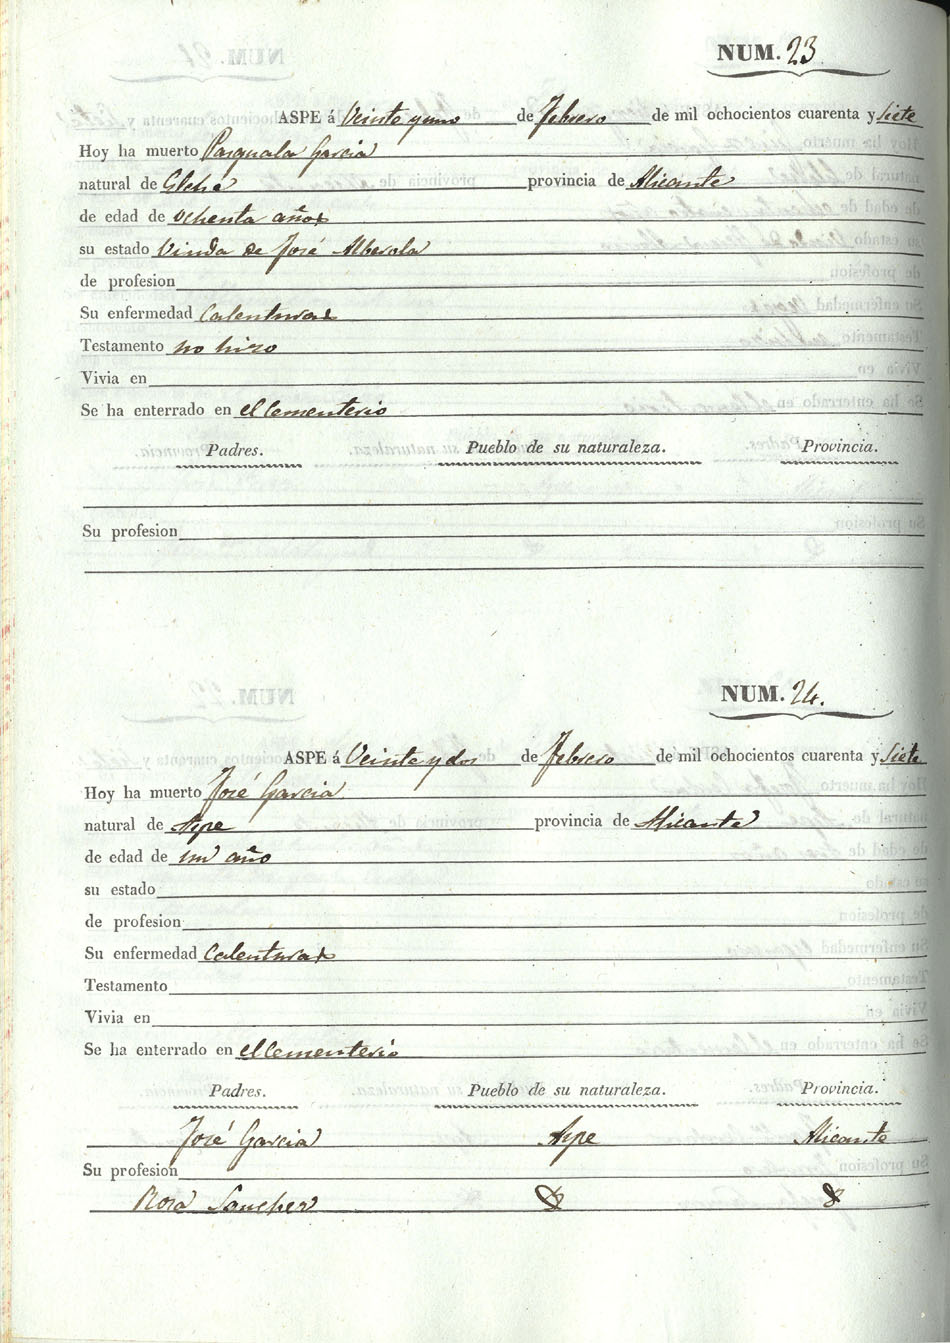 NUM. 23
ASPE á Veinte y uno de febrero de mil ochocientos cuarenta y siete
Hoy ha muerto Pasquala Garcia
natural de Elche provincia de Alicante
de edad de ochenta años
su estado Viuda de José Alberola
de profesion
Su enfermedad Calenturas
Testamento no hizo
Vivia en
Se ha enterrado en el Cementerio
Padres. Pueblo de su naturaleza. Provincia.
Su profesion
NUM. 24.
ASPE á Veinte y dos de febrero de mil ochocientos cuarenta y siete
Hoy ha muerto José Garcia
natural de Aspe provincia de Alicante
de edad de un año
su estado
de profesion
Su enfermedad Calenturas
Testamento
Vivia en
Se ha enterrado en el Cementerio
Padres. Pueblo de su naturaleza. Provincia.
José Garcia Aspe Alicante
Su profesion
Rosa Sanchez